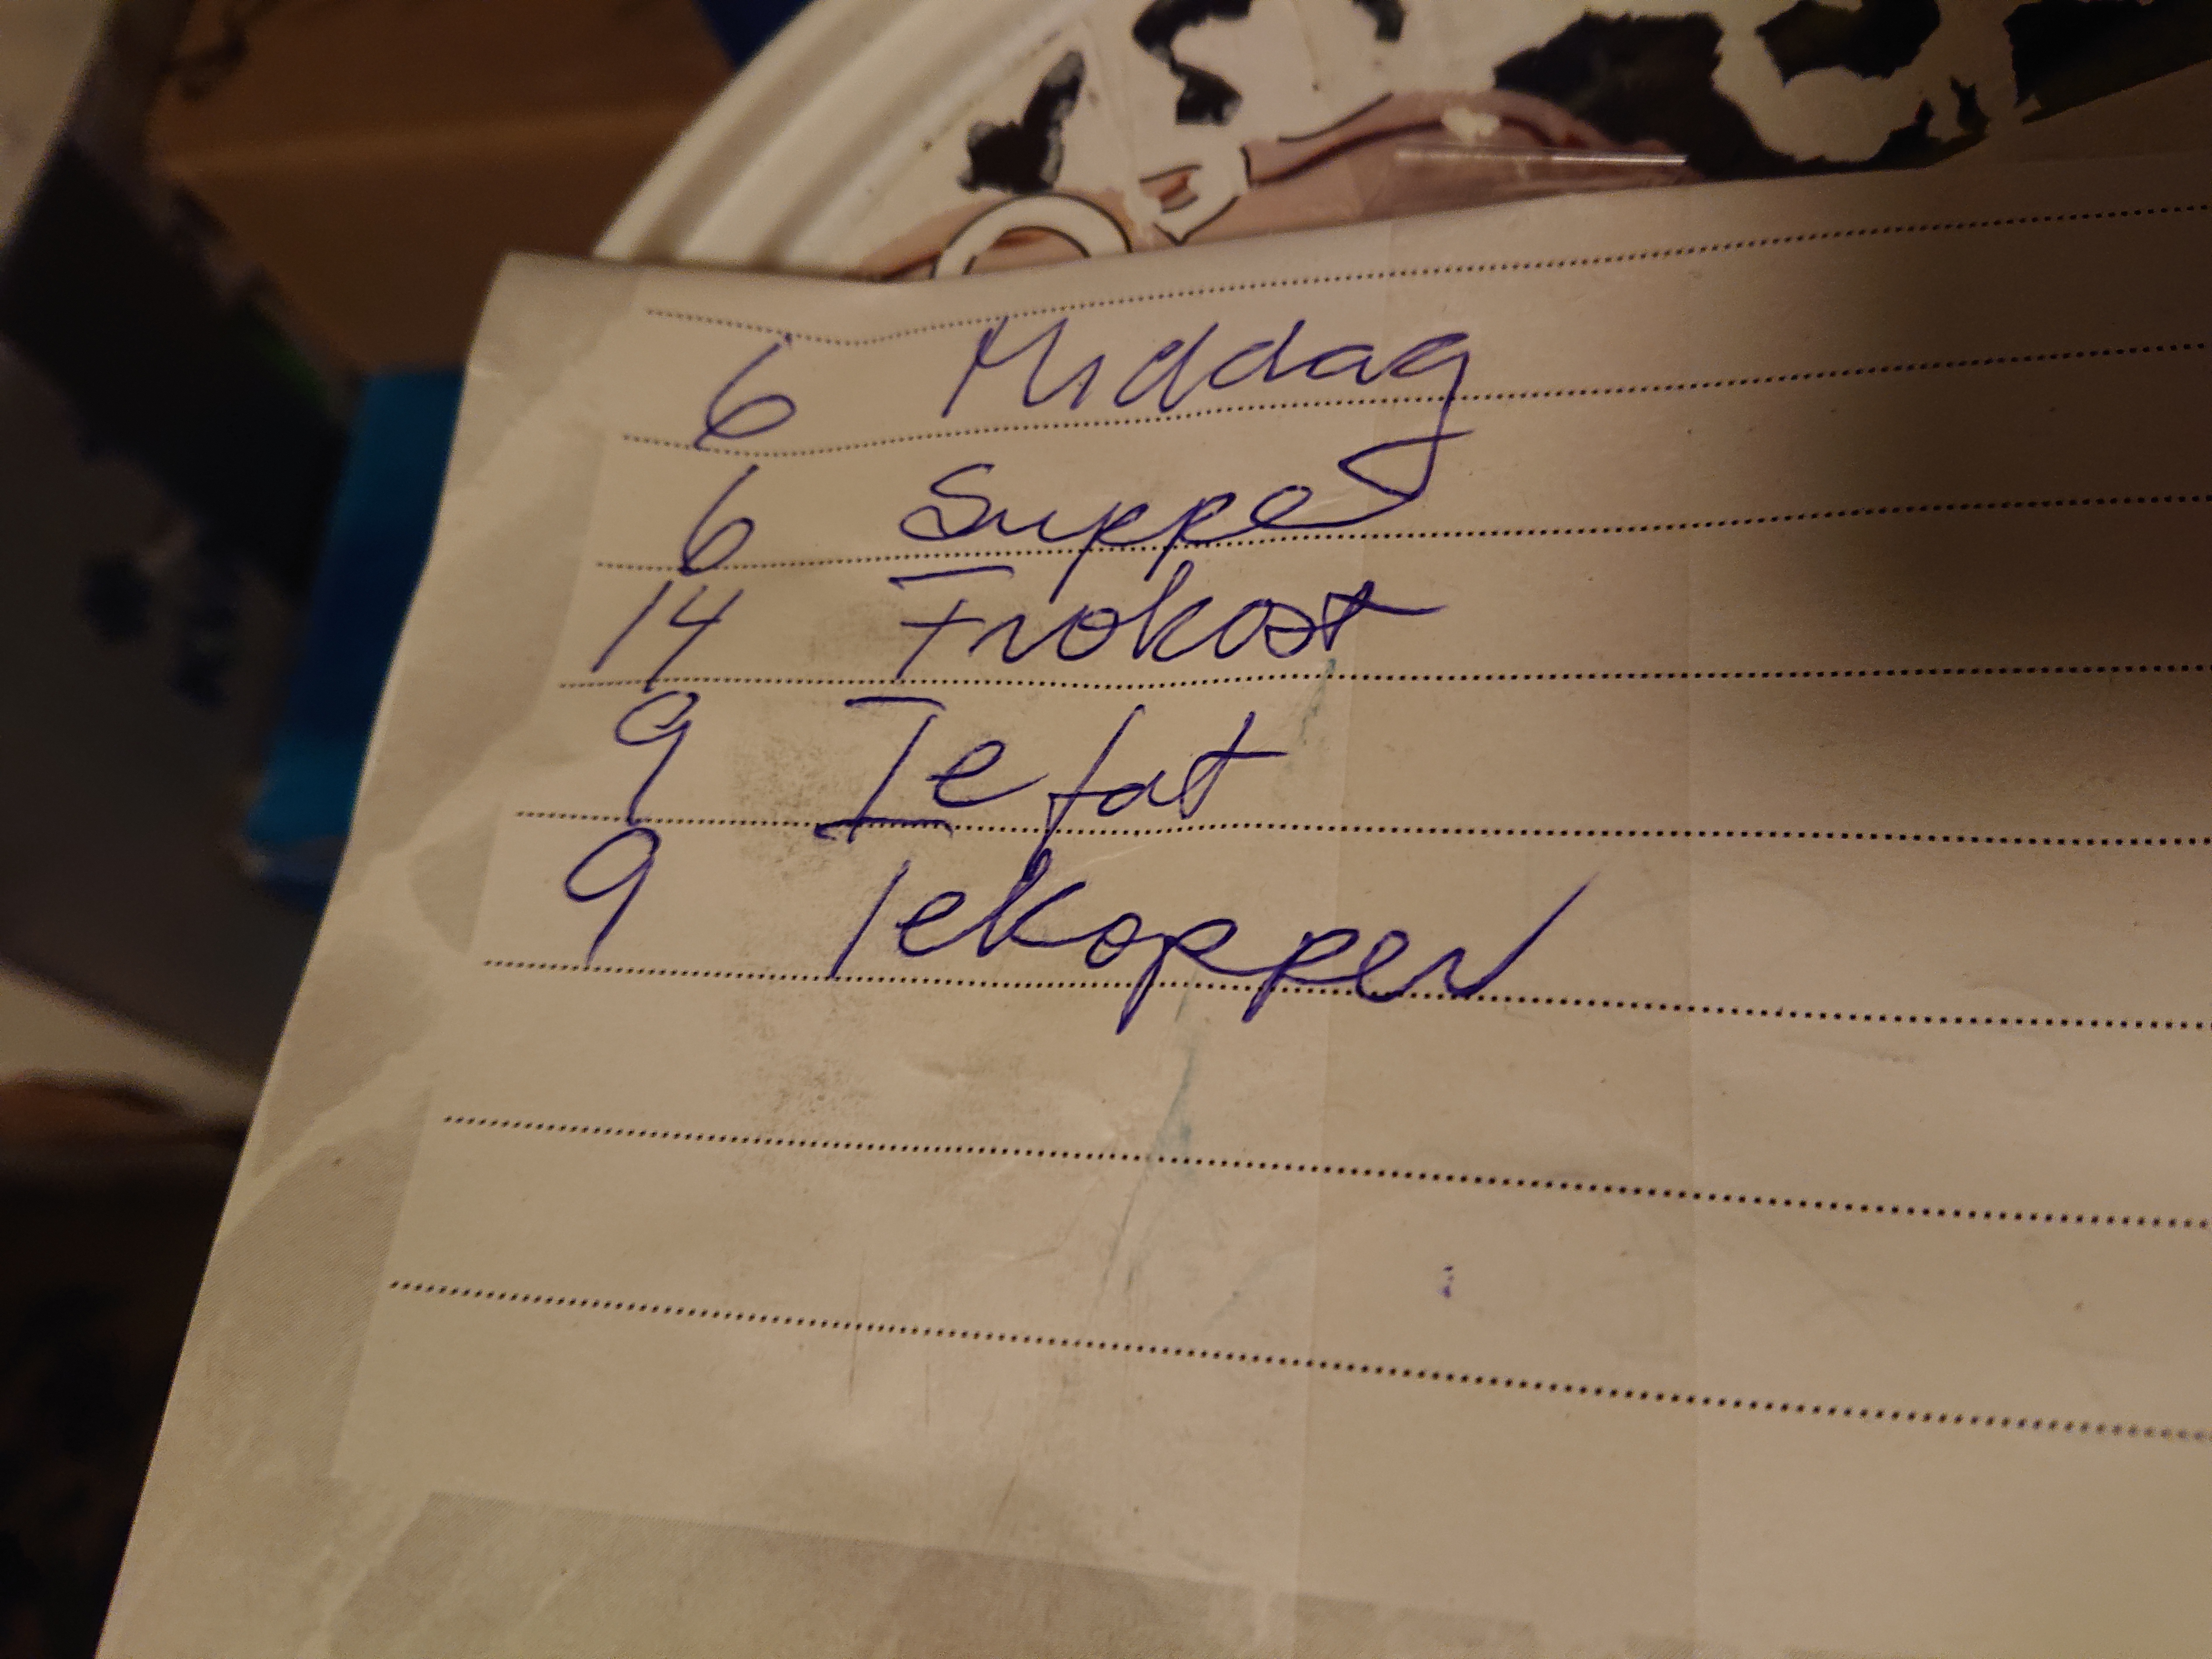 6 Middag
6 Suppe
14 Frokost
9 Te fat
9 Tekopper